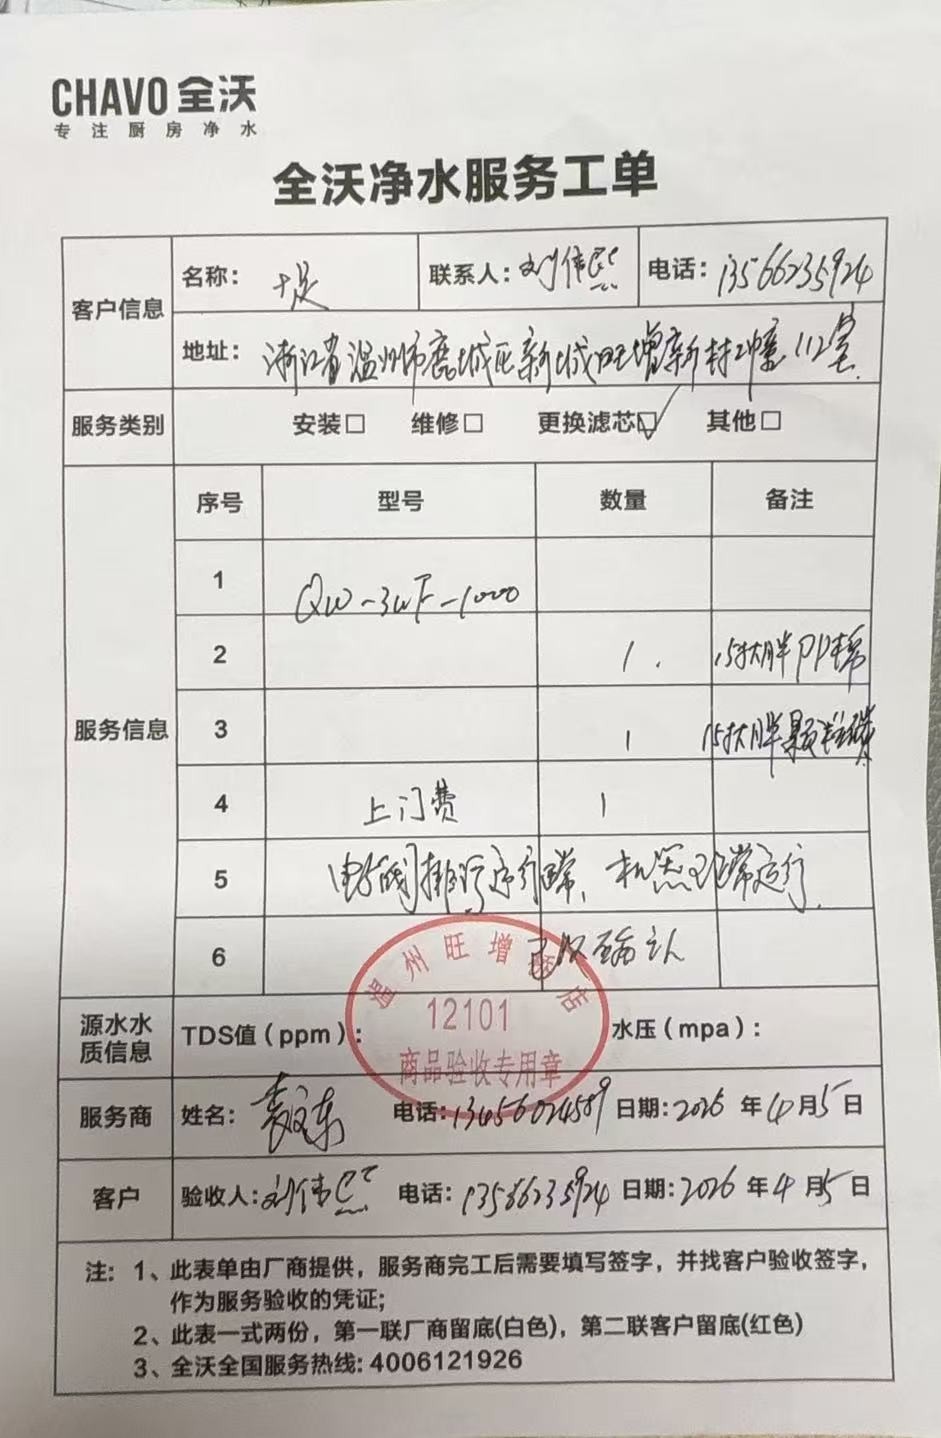 CHAVO 全沃
专注厨房净水
全沃净水服务工单
客户信息
名称： 十足
联系人： 刘伟熙
电话： 13566235924
地址： 浙江省温州市鹿城区新城旺增新村2幢112室
服务类别
安装□ 维修□ 更换滤芯☑ 其他□
服务信息
序号 型号 数量 备注
1 QW-3WF-1000
2 1. 15寸大胖PP棉
3 1 15寸大胖颗粒碳
4 上门费 1
5 电磁阀排污运行正常、机器正常运行.
6
温州旺增新店
12101
商品验收专用章
源水水质信息
TDS值（ppm）： 水压（mpa）：
服务商 姓名： 袁文东 电话：13456024589 日期：2026 年 4 月 5 日
客户 验收人：刘伟熙 电话：13566235924 日期：2026 年 4 月 5 日
注：1、此表单由厂商提供，服务商完工后需要填写签字，并找客户验收签字，
作为服务验收的凭证；
2、此表一式两份，第一联厂商留底(白色)，第二联客户留底(红色)
3、全沃全国服务热线: 4006121926